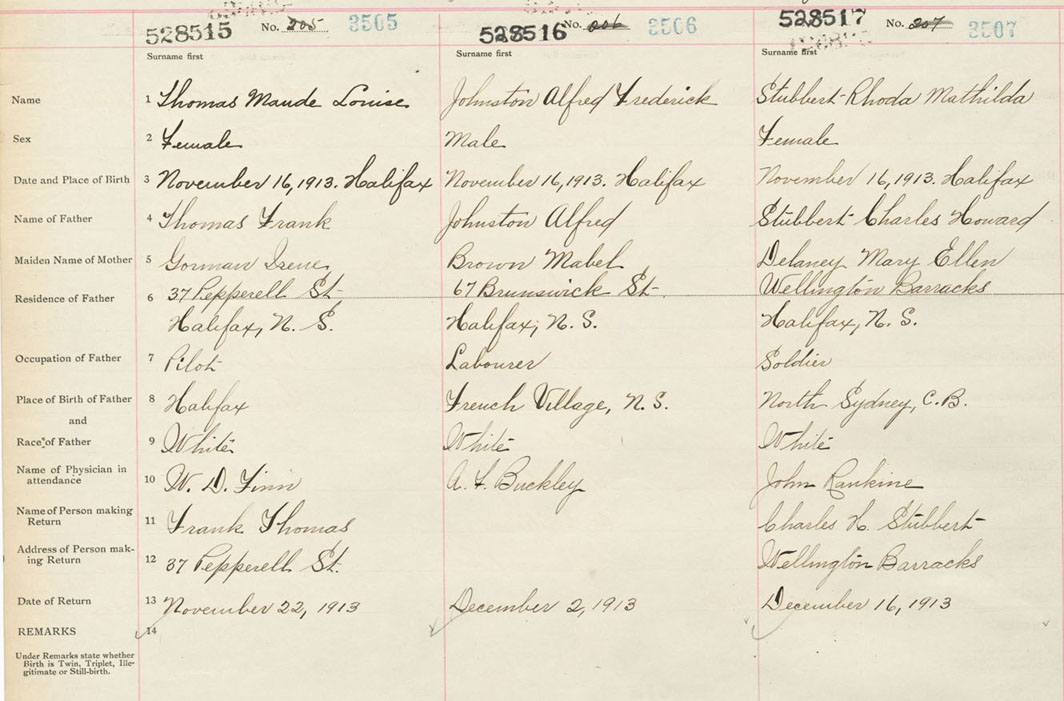 528515 No. 205 3505 528516 No. 206 3506 528517 No. 207 3507
Surname first Surname first Surname first
Name 1 Thomas Maude Louise Johnston Alfred Frederick Stubbert Rhoda Mathilda
Sex 2 Female Male Female
Date and Place of Birth 3 November 16, 1913. Halifax November 16, 1913. Halifax November 16, 1913. Halifax
Name of Father 4 Thomas Frank Johnston Alfred Stubbert Charles Howard
Maiden Name of Mother 5 Gorman Irene Brown Mabel Delaney Mary Ellen
Residence of Father 6 37 Pepperell St. 67 Brunswick St. Wellington Barracks
Halifax, N. S. Halifax, N. S. Halifax, N. S.
Occupation of Father 7 Pilot Labourer Soldier
Place of Birth of Father 8 Halifax French Village, N. S. North Sydney, C. B.
and
Race of Father 9 White White White
Name of Physician in
attendance 10 W. D. Finn A. F. Buckley John Rankine
Name of Person making
Return 11 Frank Thomas Charles H. Stubbert
Address of Person mak-
ing Return 12 37 Pepperell St. Wellington Barracks
Date of Return 13 November 22, 1913 December 2, 1913 December 16, 1913
REMARKS 14
Under Remarks state whether
Birth is Twin, Triplet, Ille-
gitimate or Still-birth.